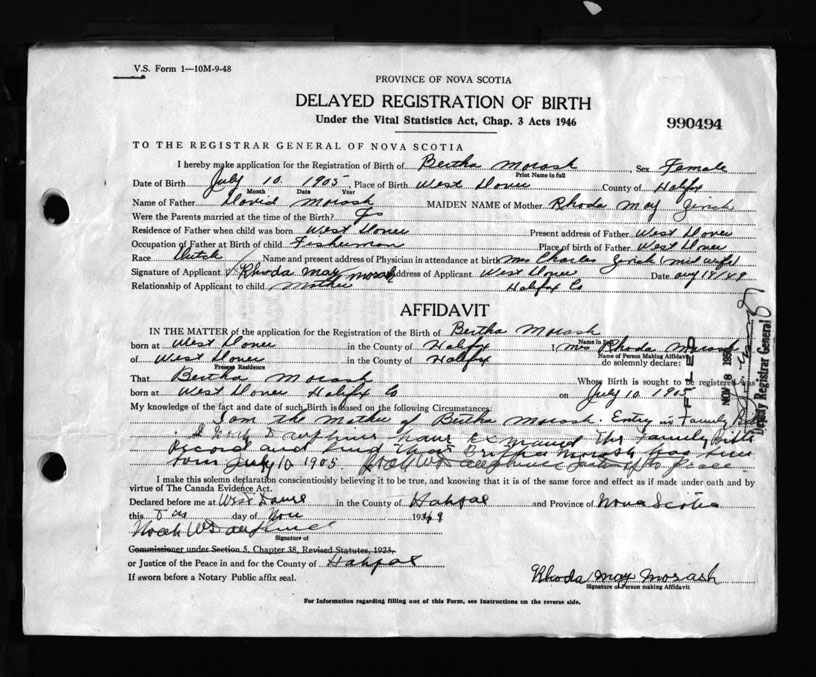 V.S. Form 1—10M-9-48
PROVINCE OF NOVA SCOTIA
DELAYED REGISTRATION OF BIRTH
Under the Vital Statistics Act, Chap. 3 Acts 1946
990494
TO THE REGISTRAR GENERAL OF NOVA SCOTIA
I hereby make application for the Registration of Birth of Bertha Morash, Sex Female
Print Name in full
Date of Birth July 10 1905, Place of Birth West Dover County of Halifax
Month Date Year
Name of Father David Morash MAIDEN NAME of Mother Rhoda May
Were the Parents married at the time of the Birth?
Residence of Father when child was born West Dover Present address of Father West Dover
Occupation of Father at Birth of child Fisherman Place of birth of Father West Dover
Race Dutch Name and present address of Physician in attendance at birth Mrs Charles (mid wife)
Signature of Applicant Rhoda May Morash Address of Applicant West Dover Date Aug 19/49
Relationship of Applicant to child Mother Halifax Co
AFFIDAVIT
IN THE MATTER of the application for the Registration of Birth of Bertha Morash
Name in Full
born at West Dover in the County of Halifax I Mrs Rhoda Morash
Name of Person Making Affidavit
of West Dover in the County of Halifax do solemnly declare:
Present Residence
That Bertha Morash Whose Birth is sought to be registered was
born at West Dover Halifax Co on July 10 1905
My knowledge of the fact and date of such Birth is based on the following Circumstances:
I am the Mother of Bertha Morash. Entry in Family
I have Examined the Family Bible
Record and find that Bertha Morash has been
born July 10 1905.
I make this solemn declaration conscientiously believing it to be true, and knowing that it is of the same force and effect as if made under oath and by
virtue of The Canada Evidence Act.
Declared before me at West Dover in the County of Halifax and Province of Nova Scotia
this day of Nov 1949
Noah W
Signature of
Commissioner under Section 5, Chapter 38, Revised Statutes, 1923,
or Justice of the Peace in and for the County of Halifax
If sworn before a Notary Public affix seal.
Rhoda May Morash
Signature of Person making Affidavit
For Information regarding filling out of this Form, see Instructions on the reverse side.
FILED
NOV 8
Deputy Registrar General